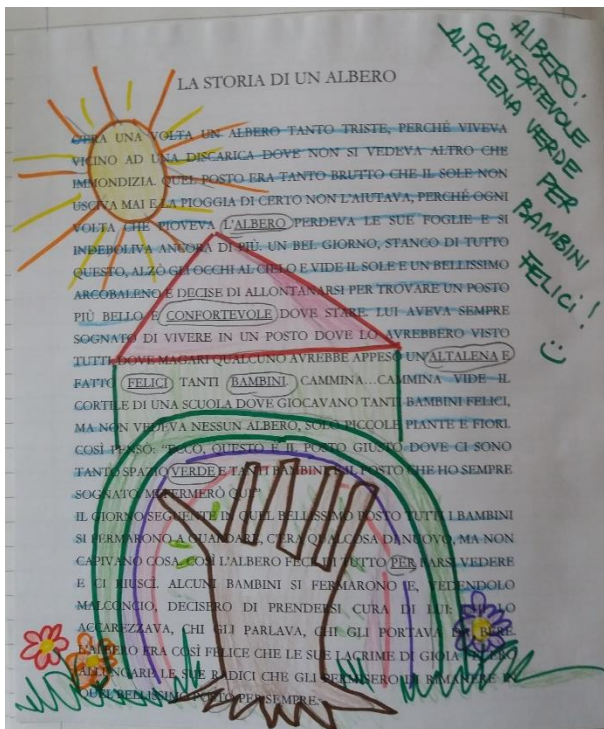 LA STORIA DI UN ALBERO
C'ERA UNA VOLTA UN ALBERO TANTO TRISTE, PERCHÉ VIVEVA
VICINO AD UNA DISCARICA DOVE NON SI VEDEVA ALTRO CHE
IMMONDIZIA. QUEL POSTO ERA TANTO BRUTTO CHE IL SOLE NON
USCIVA MAI E LA PIOGGIA DI CERTO NON L'AIUTAVA, PERCHÉ OGNI
VOLTA CHE PIOVEVA L'ALBERO PERDEVA LE SUE FOGLIE E SI
INDEBOLIVA ANCORA DI PIÙ. UN BEL GIORNO, STANCO DI TUTTO
QUESTO, ALZÒ GLI OCCHI AL CIELO E VIDE IL SOLE E UN BELLISSIMO
ARCOBALENO E DECISE DI ALLONTANARSI PER TROVARE UN POSTO
PIÙ BELLO E CONFORTEVOLE DOVE STARE. LUI AVEVA SEMPRE
SOGNATO DI VIVERE IN UN POSTO DOVE LO AVREBBERO VISTO
TUTTI, DOVE MAGARI QUALCUNO AVREBBE APPESO UN ALTALENA E
FATTO FELICI TANTI BAMBINI. CAMMINA...CAMMINA VIDE IL
CORTILE DI UNA SCUOLA DOVE GIOCAVANO TANTI BAMBINI FELICI,
MA NON VEDEVA NESSUN ALBERO, SOLO PICCOLE PIANTE E FIORI.
COSÌ PENSÒ: "ECCO, QUESTO È IL POSTO GIUSTO DOVE CI SONO
TANTO SPAZIO VERDE E TANTI BAMBINI. È IL POSTO CHE HO SEMPRE
SOGNATO. MI FERMERÒ QUI"
IL GIORNO SEGUENTE IN QUEL BELLISSIMO POSTO TUTTI I BAMBINI
SI FERMARONO A GUARDARE, C'ERA QUALCOSA DI NUOVO, MA NON
CAPIVANO COSA. COSÌ L'ALBERO FECE DI TUTTO PER FARSI VEDERE
E CI RIUSCÌ. ALCUNI BAMBINI SI FERMARONO E, VEDENDOLO
MALCONCIO, DECISERO DI PRENDERSI CURA DI LUI: LO
ACCAREZZAVA, CHI GLI PARLAVA, CHI GLI PORTAVA DA BERE.
L'ALBERO ERA COSÌ FELICE CHE LE SUE LACRIME DI GIOIA
ALLUNGARE LE SUE RADICI CHE GLI PERMISERO DI RIMANERE IN
QUEL BELLISSIMO POSTO PER SEMPRE.
ALBERO:
CONFORTEVOLE
ALTALENA VERDE PER
BAMBINI
FELICI!